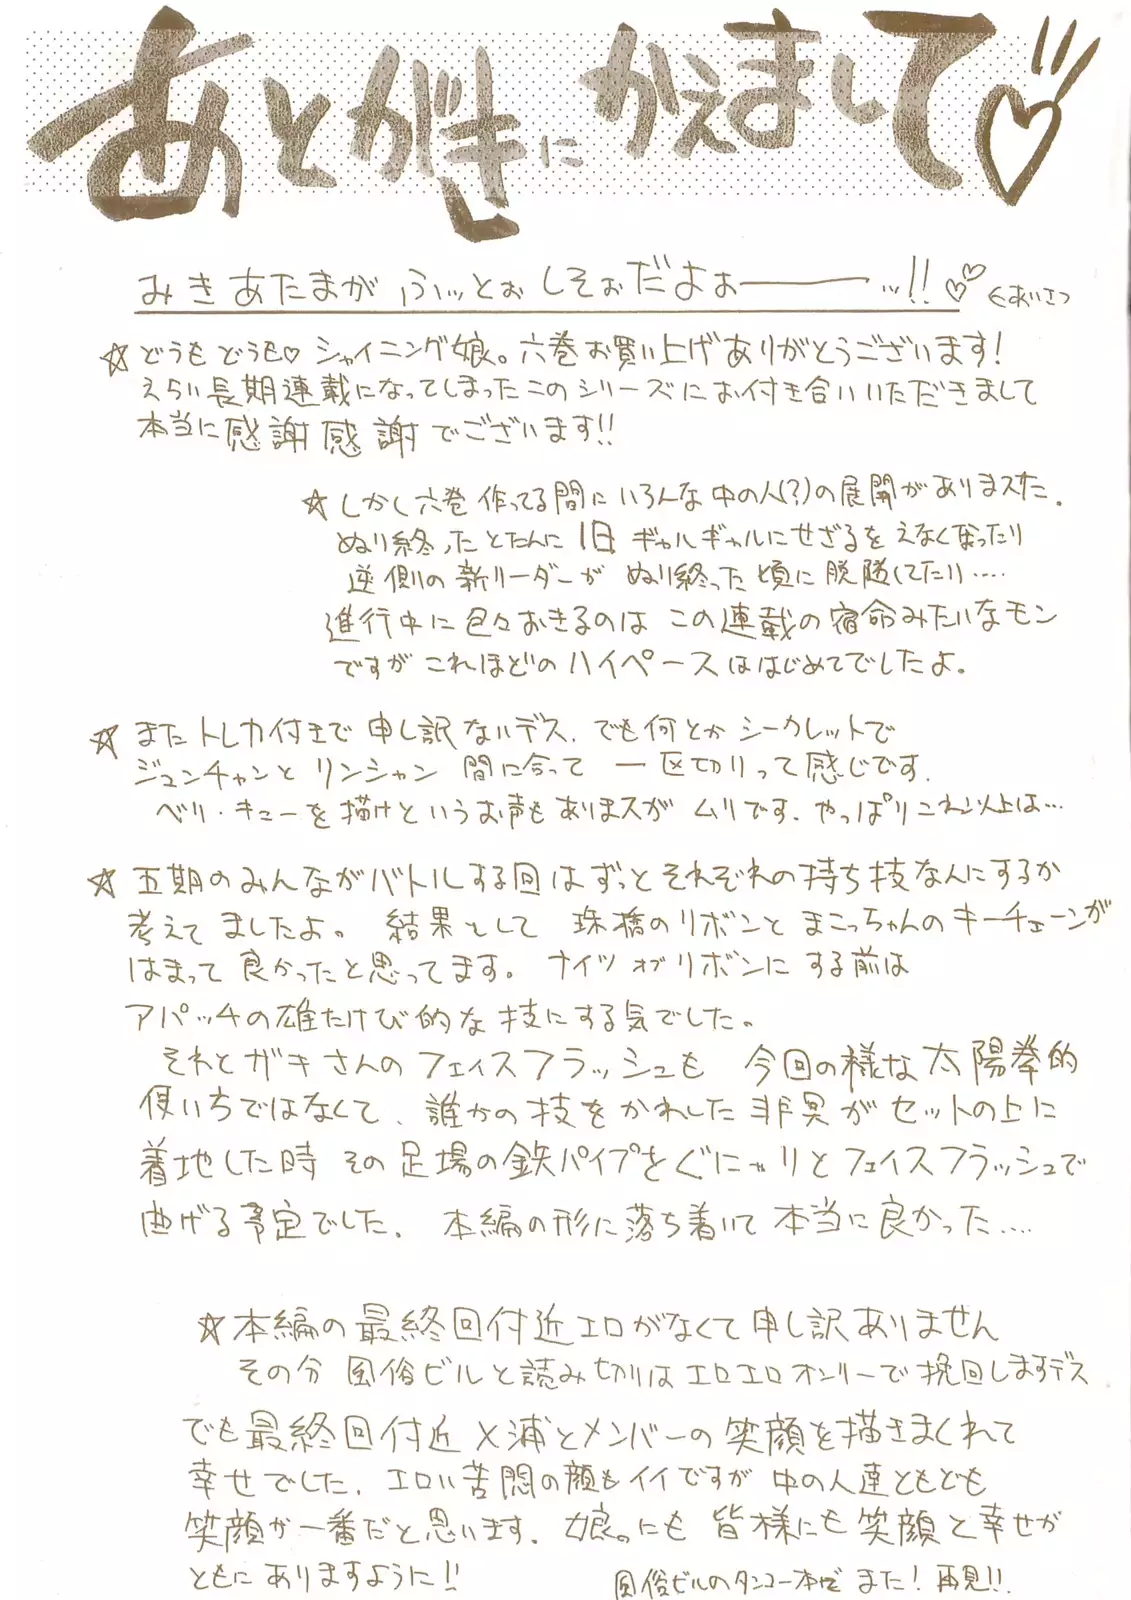 あとがきにかえまして♡
みきあたまがふぃっとぉしそぉだよぉーーー…!!♡♡ ←あいさつ
☆どうもどうも♡シャイニング娘。六巻お買い上げありがとうございます!
えらい長期連載になってしまったこのシリーズにお付き合いいただきまして
本当に感謝感謝でございます!!
☆しかし六巻作ってる間にいろんな中の人(?)の展開がありますた.
ぬり終ったとたんに1日ギャルギャルにせざるをえなくなったり
逆側の新リーダーがぬり終った頃に脱隊してたり….
進行中に色々おきるのはこの連載の宿命みたいなモン
ですがこれほどのハイペースははじめてでしたよ。
☆またトレカ付きで申し訳ないデス.でも何とかシークレットで
ジュンチャンとリンシャン間に合って一区切りって感じです.
ベリ・キューを描けというお声もありまスがムリです.やっぱりこれ以上は…
☆五期のみんながバトルする回はずっとそれぞれの持ち技なんにするか
考えてましたよ。結果として珠橋のリボンとまこっちゃんのキーチェーンが
はまって良かったと思ってます。ナイツオブリボンにする前は
アパッチの雄たけび的な技にする気でした。
それとガキさんのフェイスフラッシュも今回の様な太陽拳的
使いちではなくて、誰かの技をかわした非冥がセットの上に
着地した時その足場の鉄パイプをぐにゃりとフェイスフラッシュで
曲げる予定でした.本編の形に落ち着いて本当に良かった….
☆本編の最終回付近エロがなくて申し訳ありません
その分風俗ビルと読み切りはエロエロオンリーで挽回しますデス
でも最終回付近メ浦とメンバーの笑顔を描きまくれて
幸せでした.エロい苦悶の顔もイイですが中の人達ともども
笑顔が一番だと思います.娘。にも皆様にも笑顔と幸せが
ともにありますように!!
風俗ビルのタンコー本でまた!再見!!.